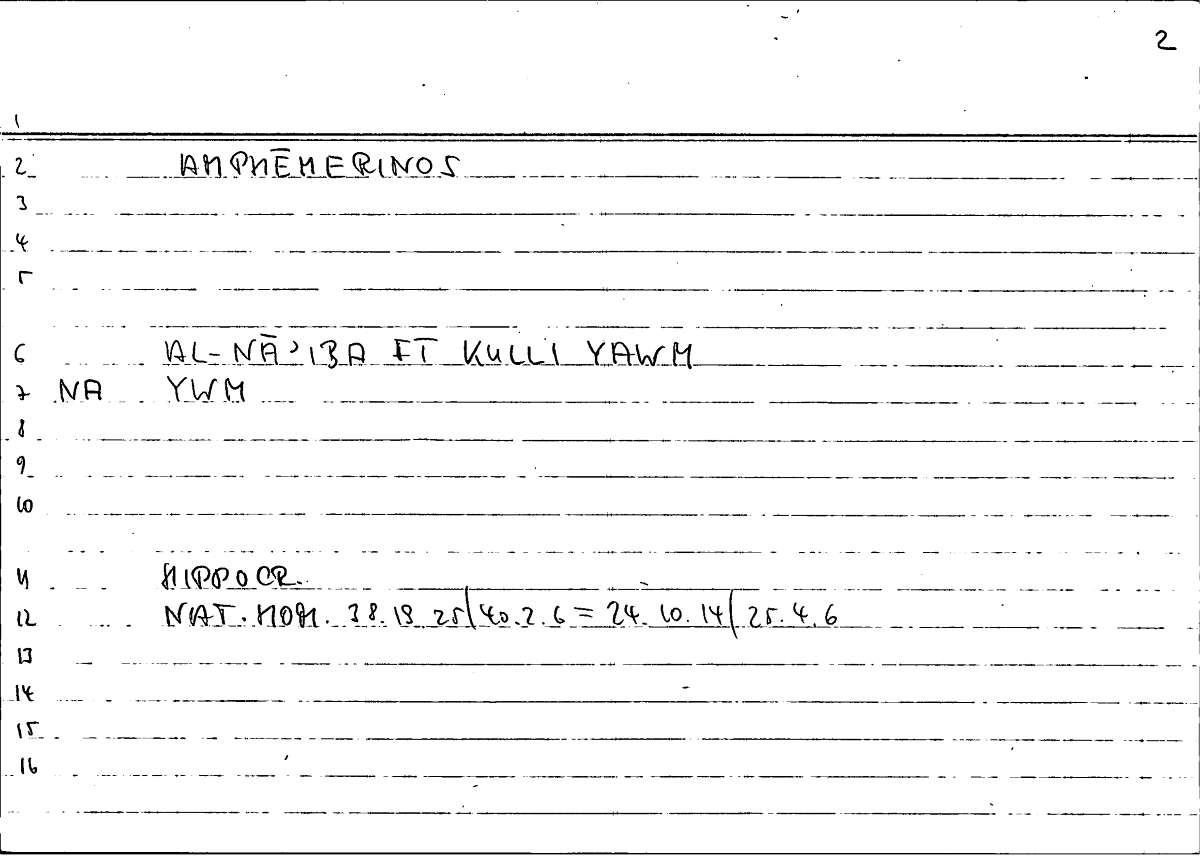 2
1
2 AMPHĒMERINOS
3
4
5
6 AL-NĀʾIBA FĪ KULLI YAWM
7 NA YWM
8
9
10
11 HIPPOCR.
12 NAT. HOM. 38.19 25/40.2.6 = 24.10.14/25.4.6
13
14
15
16